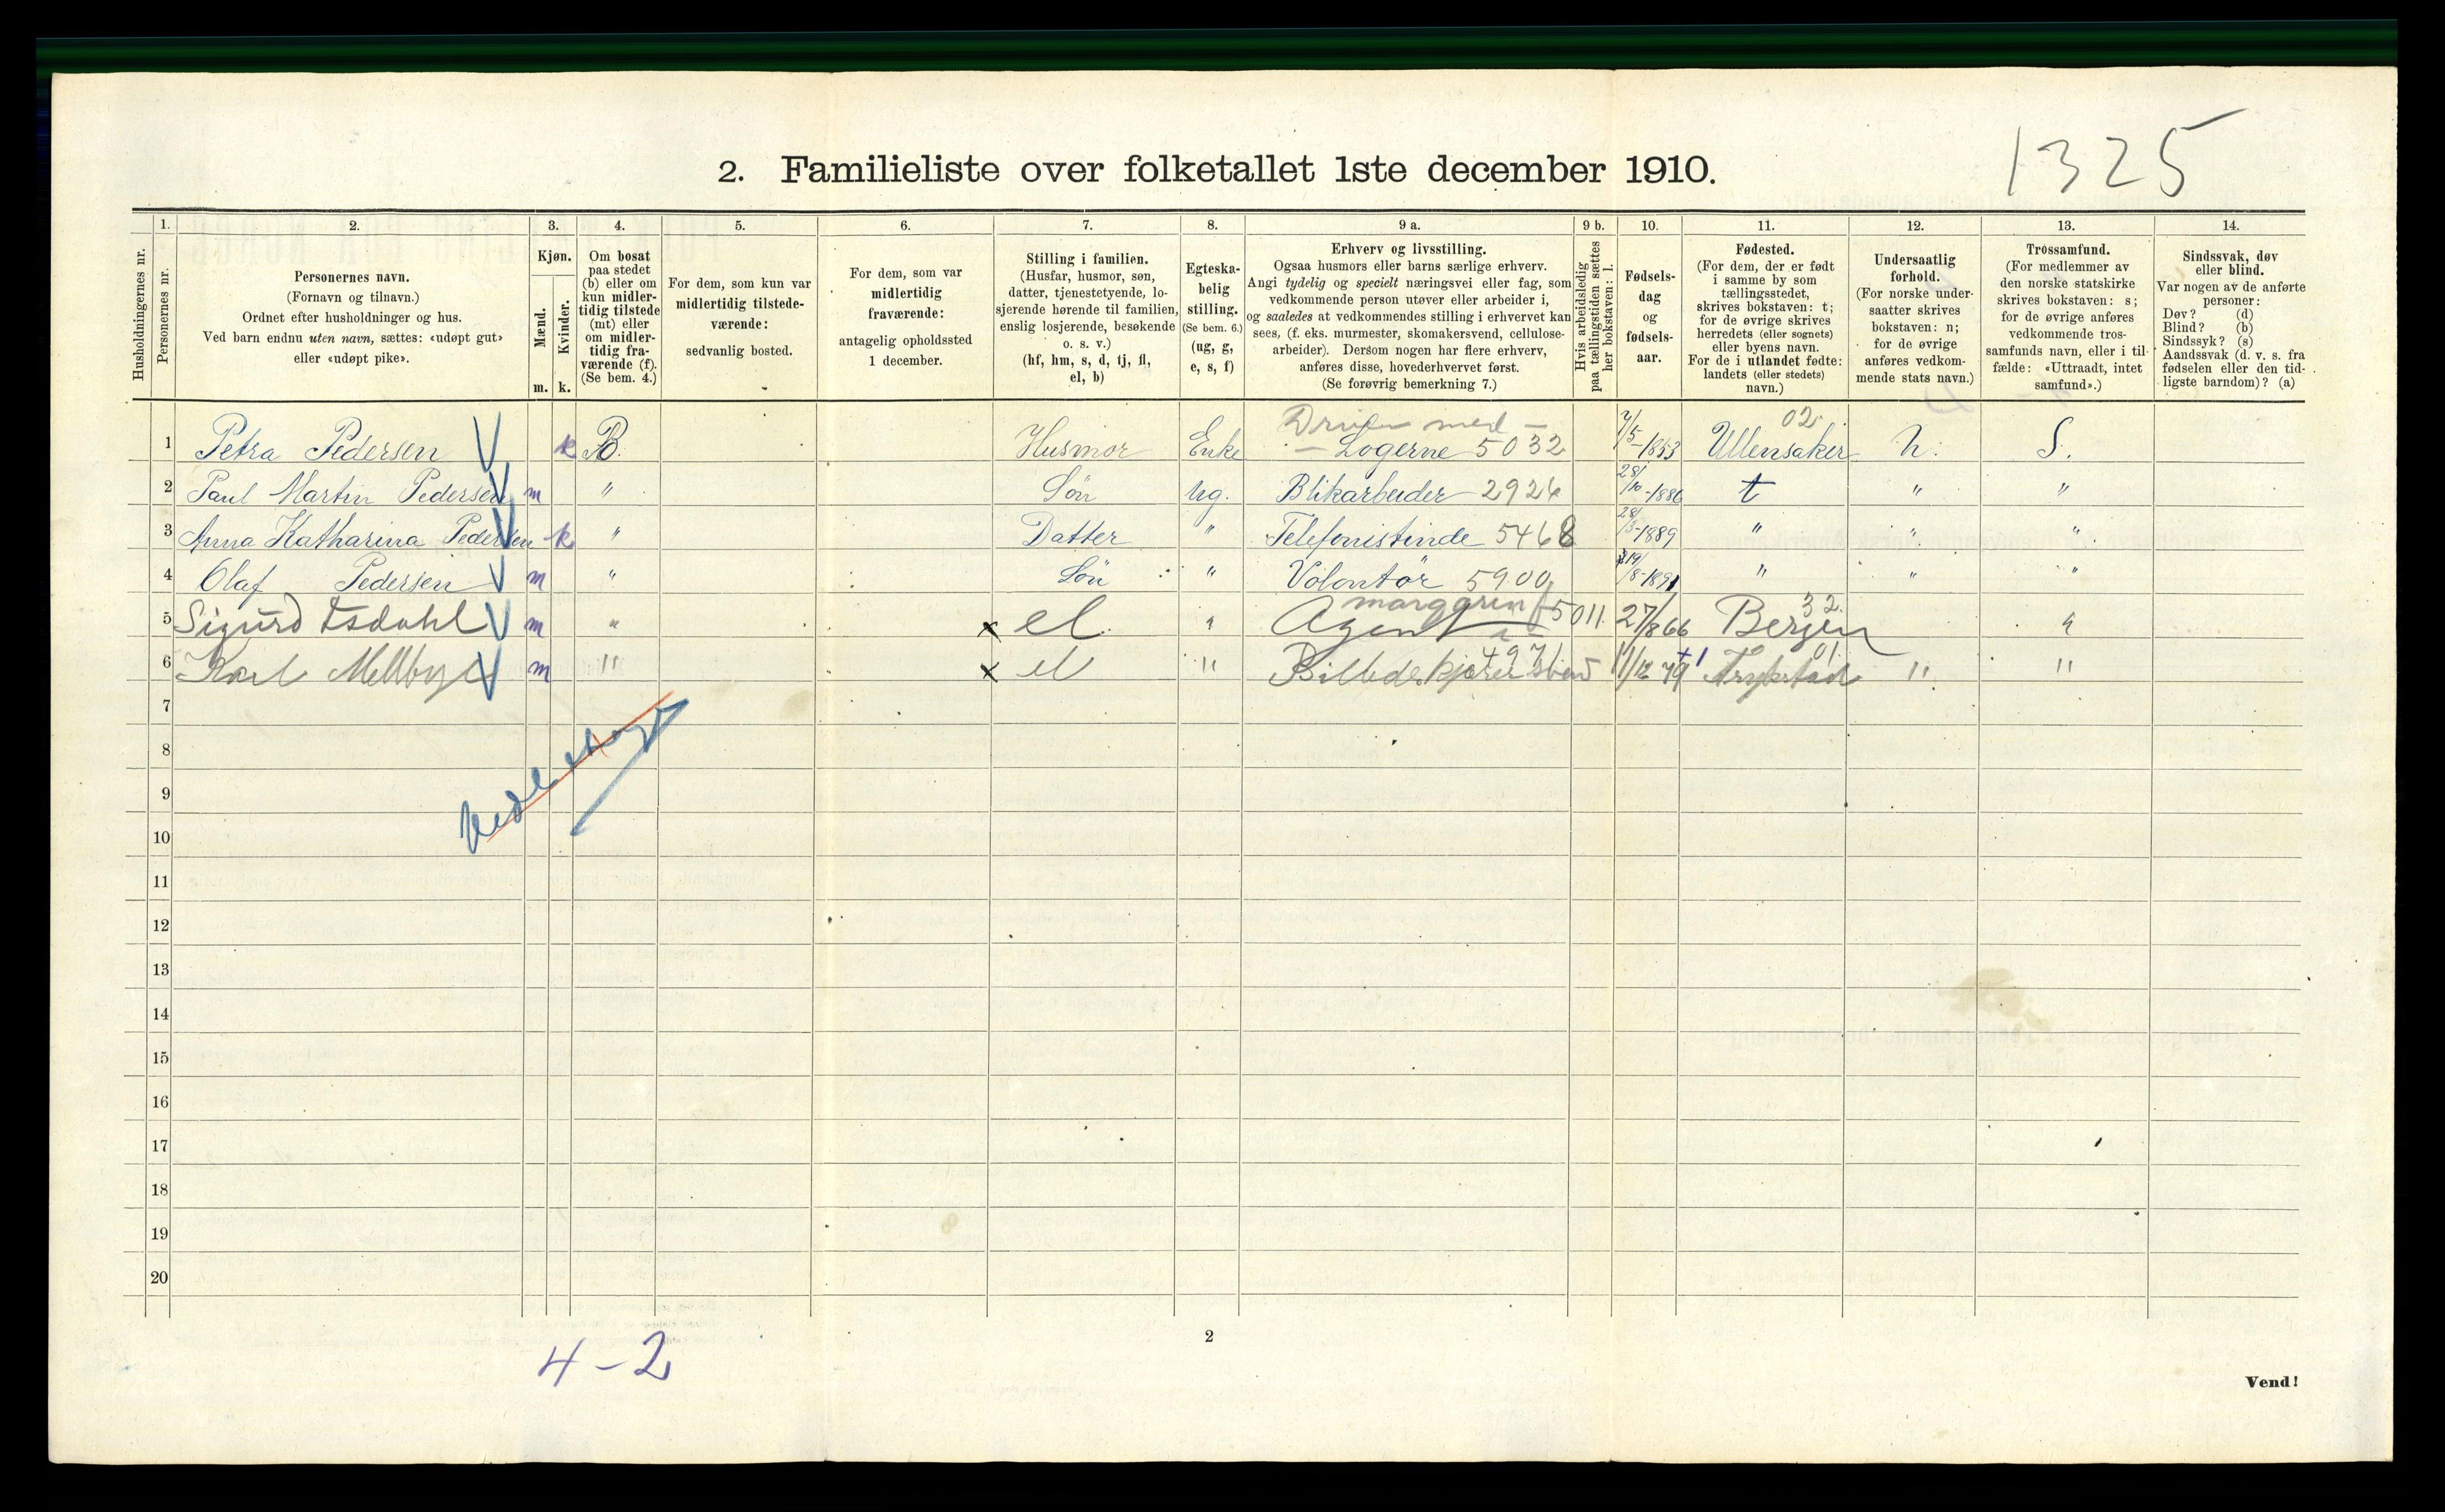 1325
2. Familieliste over folketallet 1ste december 1910.
1. 2. 3. 4. 5. 6. 7. 8. 9 a. 9 b. 10. 11. 12. 13. 14.
Husholdningernes nr.
Personernes nr.
Personernes navn.
(Fornavn og tilnavn.)
Ordnet efter husholdninger og hus.
Ved barn endnu uten navn, sættes: «udøpt gut»
eller «udøpt pike».
Kjøn.
Mænd.
Kvinder.
m. k.
Om bosat
paa stedet
(b) eller om
kun midler-
tidig tilstede
(mt) eller
om midler-
tidig fra-
værende (f).
(Se bem. 4.)
For dem, som kun var
midlertidig tilstede-
værende:
sedvanlig bosted.
For dem, som var
midlertidig
fraværende:
antagelig opholdssted
1 december.
Stilling i familien.
(Husfar, husmor, søn,
datter, tjenestetyende, lo-
sjerende hørende til familien,
enslig losjerende, besøkende
o. s. v.)
(hf, hm, s, d, tj, fl,
el, b)
Egteska-
belig
stilling.
(Se bem. 6.)
(ug, g,
e, s, f)
Erhverv og livsstilling.
Ogsaa husmors eller barns særlige erhverv.
Angi tydelig og specielt næringsvei eller fag, som
vedkommende person utøver eller arbeider i,
og saaledes at vedkommendes stilling i erhvervet kan
sees, (f. eks. murmester, skomakersvend, cellulose-
arbeider). Dersom nogen har flere erhverv,
anføres disse, hovederhvervet først.
(Se forøvrig bemerkning 7.)
Hvis arbeidsledig
paa tællingstiden sættes
her bokstaven: l.
Fødsels-
dag
og
fødsels-
aar.
Fødested.
(For dem, der er født
i samme by som
tællingsstedet,
skrives bokstaven: t;
for de øvrige skrives
herredets (eller sognets)
eller byens navn.
For de i utlandet fødte:
landets (eller stedets)
navn.)
Undersaatlig
forhold.
(For norske under-
saatter skrives
bokstaven: n;
for de øvrige
anføres vedkom-
mende stats navn.)
Trossamfund.
(For medlemmer av
den norske statskirke
skrives bokstaven: s;
for de øvrige anføres
vedkommende tros-
samfunds navn, eller i til-
fælde: «Uttraadt, intet
samfund».)
Sindssvak, døv
eller blind.
Var nogen av de anførte
personer:
Døv? (d)
Blind? (b)
Sindssyk? (s)
Aandssvak (d. v. s. fra
fødselen eller den tid-
ligste barndom)? (a)
Driver med - 02
1 Petra Pedersen V k B. Husmor Enke - Logerne 5032 7/5-1853 Ullensaker n. S.
2 Paul Martin Pedersen V m " Sön ug. Blikarbeider 2924 28/10-1886 t " "
3 Anna Katharina Pedersen V k " Datter " Telefonistinde 5468 28/3-1889 " " "
4 Olaf Pedersen V m " Sön " Volontör 5900 19/8-1891 " " "
margarin 32
5 Sigurd Isdahl V m " x el. " Agent 5011. 27/8 66 Bergen "
4971 01
6 Karl Mellbye V m " x el " 11/12 79 Trykstad " "
7
8
9
10
11
12
13
14
15
16
17
18
19
20
4-2
2
Vend!